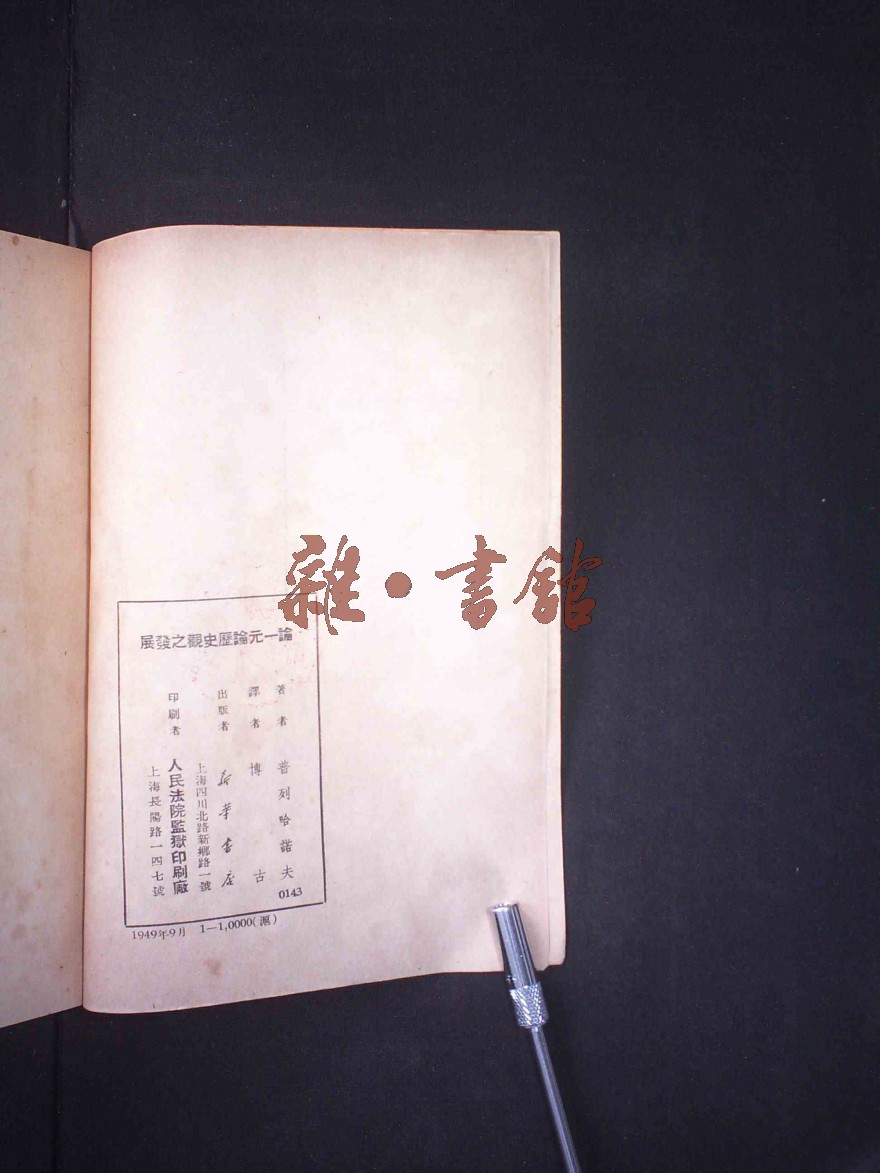 雜・書館
論一元論歷史觀之發展
著者 普列哈諾夫
譯者 博古
出版者 新華書店
上海四川北路新鄉路一號
印刷者 人民法院監獄印刷廠
上海長陽路一四七號
0143
1949年9月 1—1,0000(滬)